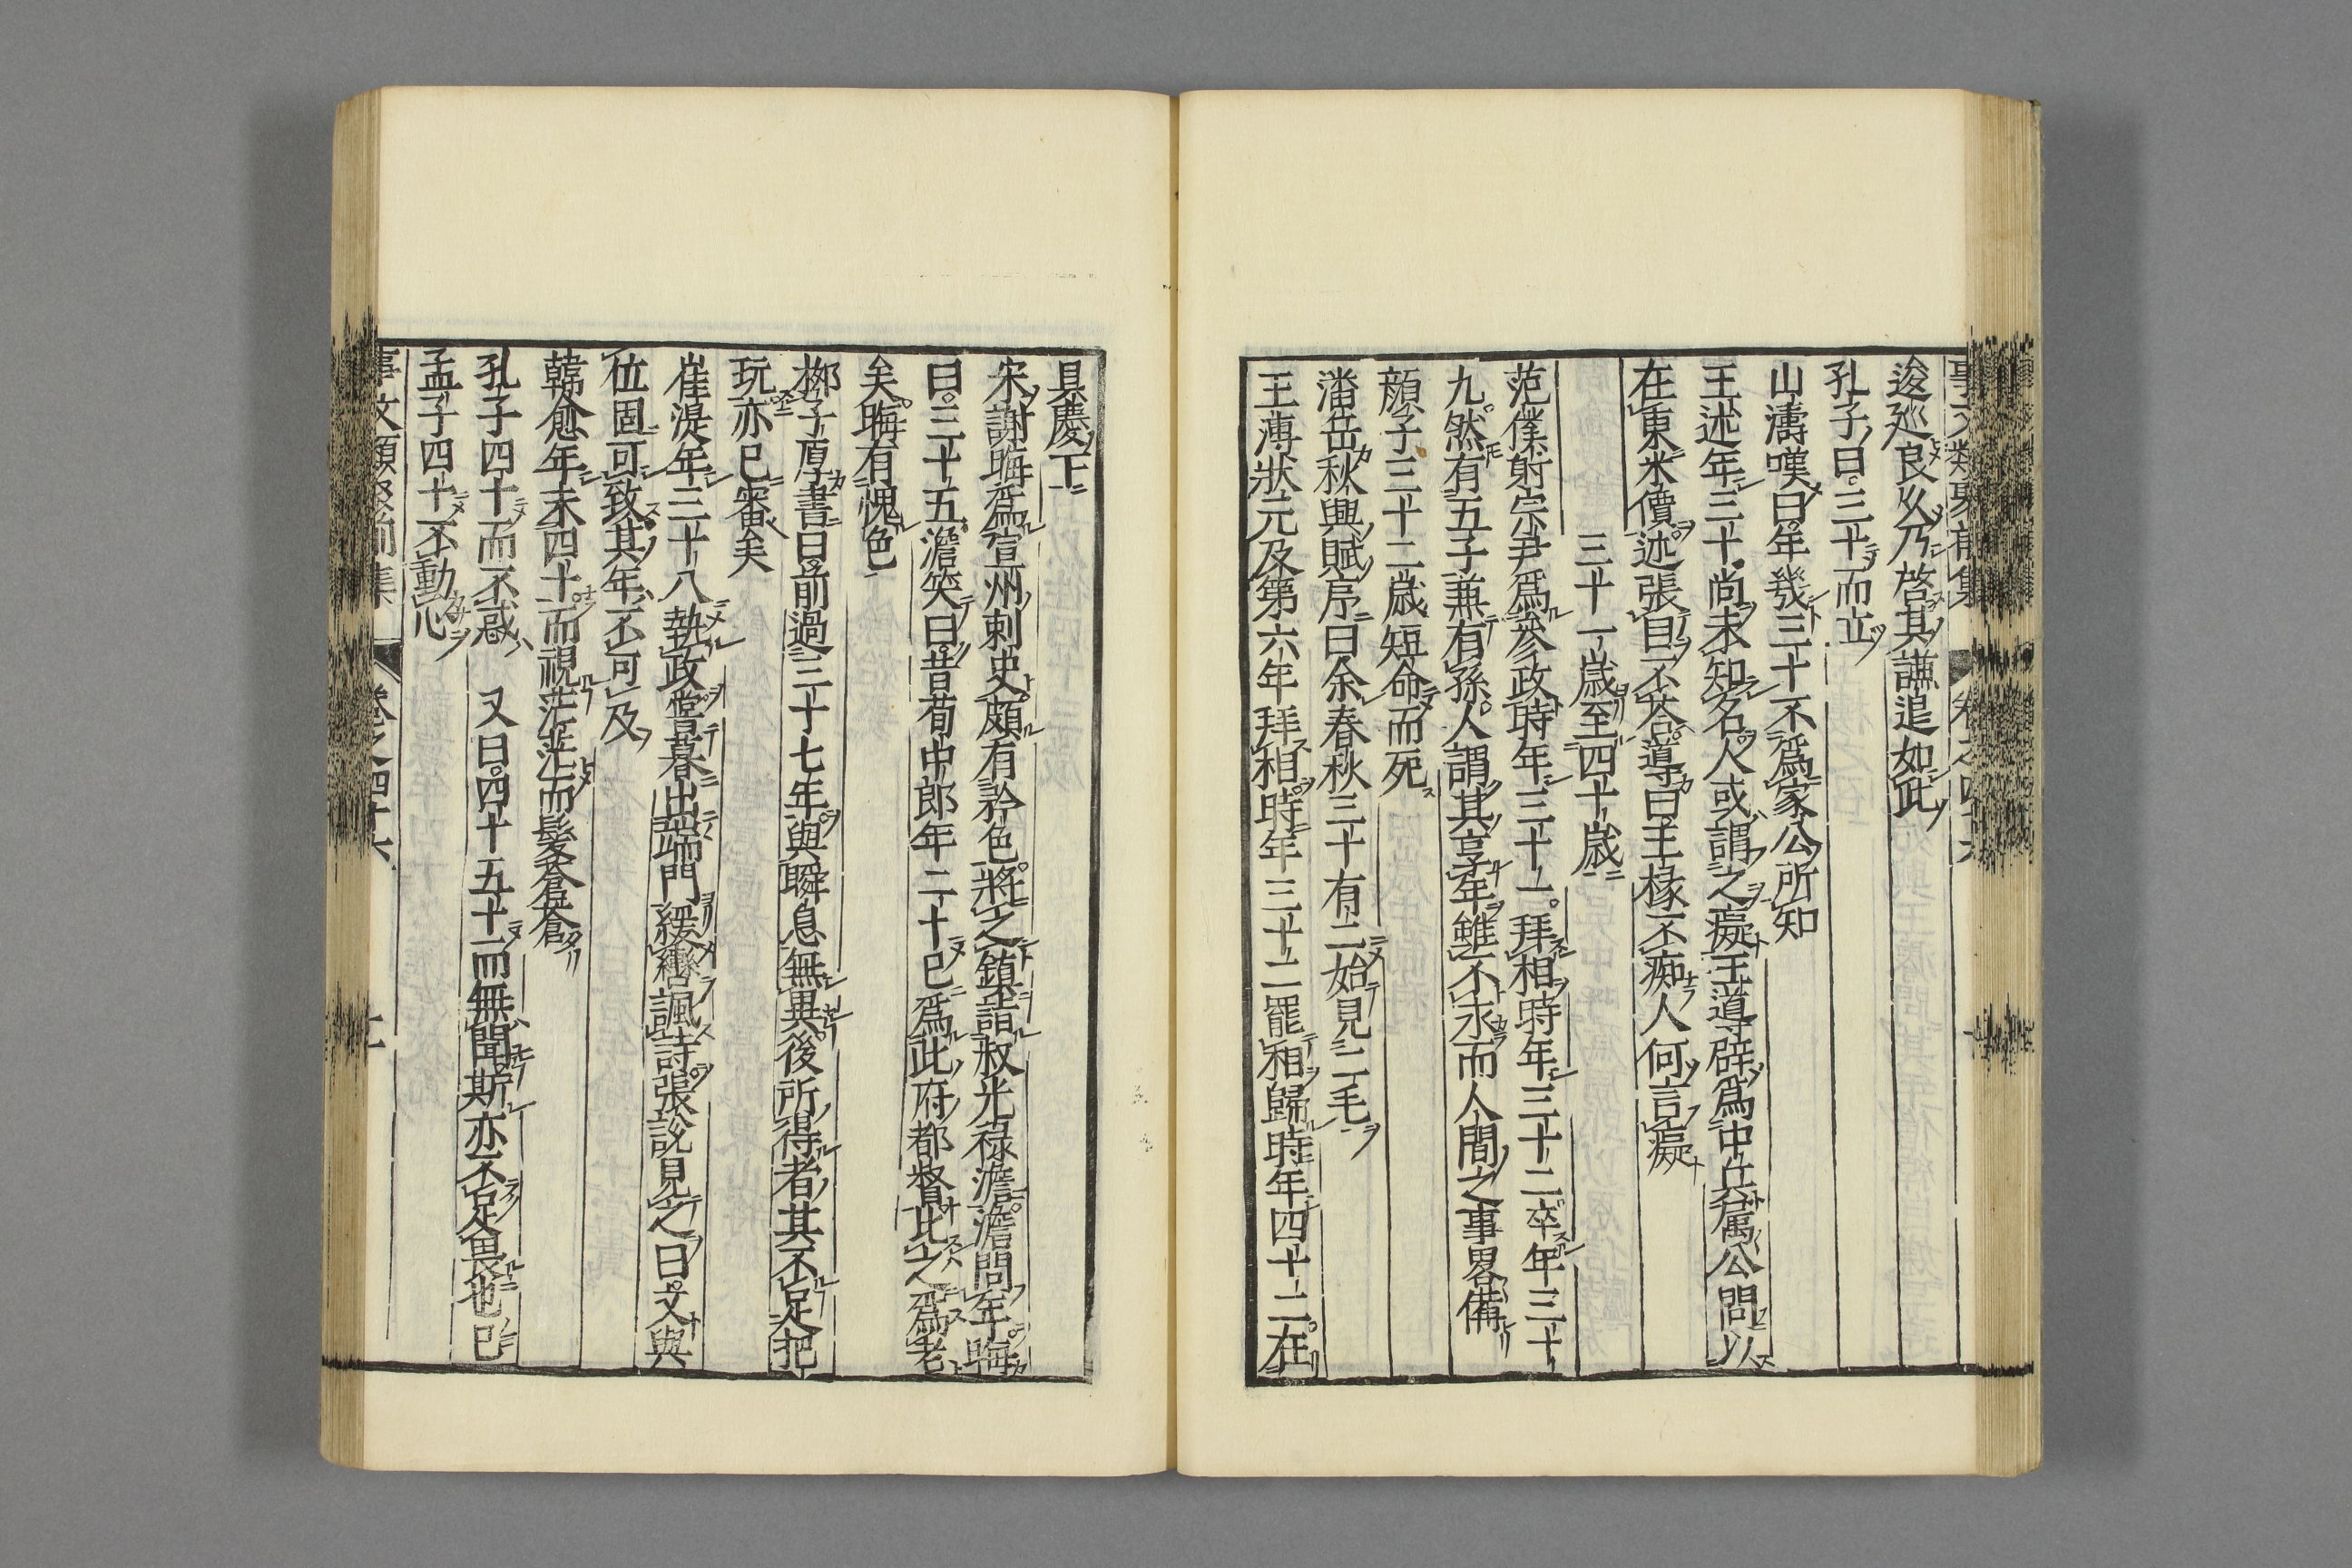 事文類聚前集 卷之四十六
逡廵良久乃啓其謙退如此
孔子曰三十而立
山濤嘆曰年幾三十不爲家公所知
王述年三十尚未知名人或謂之癡王導辟爲中兵属公問以
在東米價述張目不答導曰王掾不痴人何言癡
三十一歳至四十歳
范僕射宗尹爲叅政時年三十一拜相時年三十二卒年三十
九然有五子兼有孫人謂其享年雖不永而人間之事畧備
顔子三十二歳短命而死
潘岳秋興賦序曰余春秋三十有二始見二毛
王溥狀元及第六年拜相時年三十二罷相歸時年四十二在
具慶下
宋謝晦爲宣州刺史頗有矜色將之鎮詣叔光禄澹澹問年晦
曰三十五澹笑曰昔荀中郎年二十已爲此府都督比之爲老
矣晦有愧色
栁子厚書曰前過三十七年與瞬息無異後所得者其不足把
玩亦已審矣
崔湜年三十八執政嘗暮出端門緩轡諷詩張說見之曰文與
位固可致其年不可及
韓愈年未四十而視茫茫而髮蒼蒼
孔子四十而不惑 又曰四十五十而無聞斯亦不足畏也已
孟子四十不動心
事文類聚前集 卷之四十六